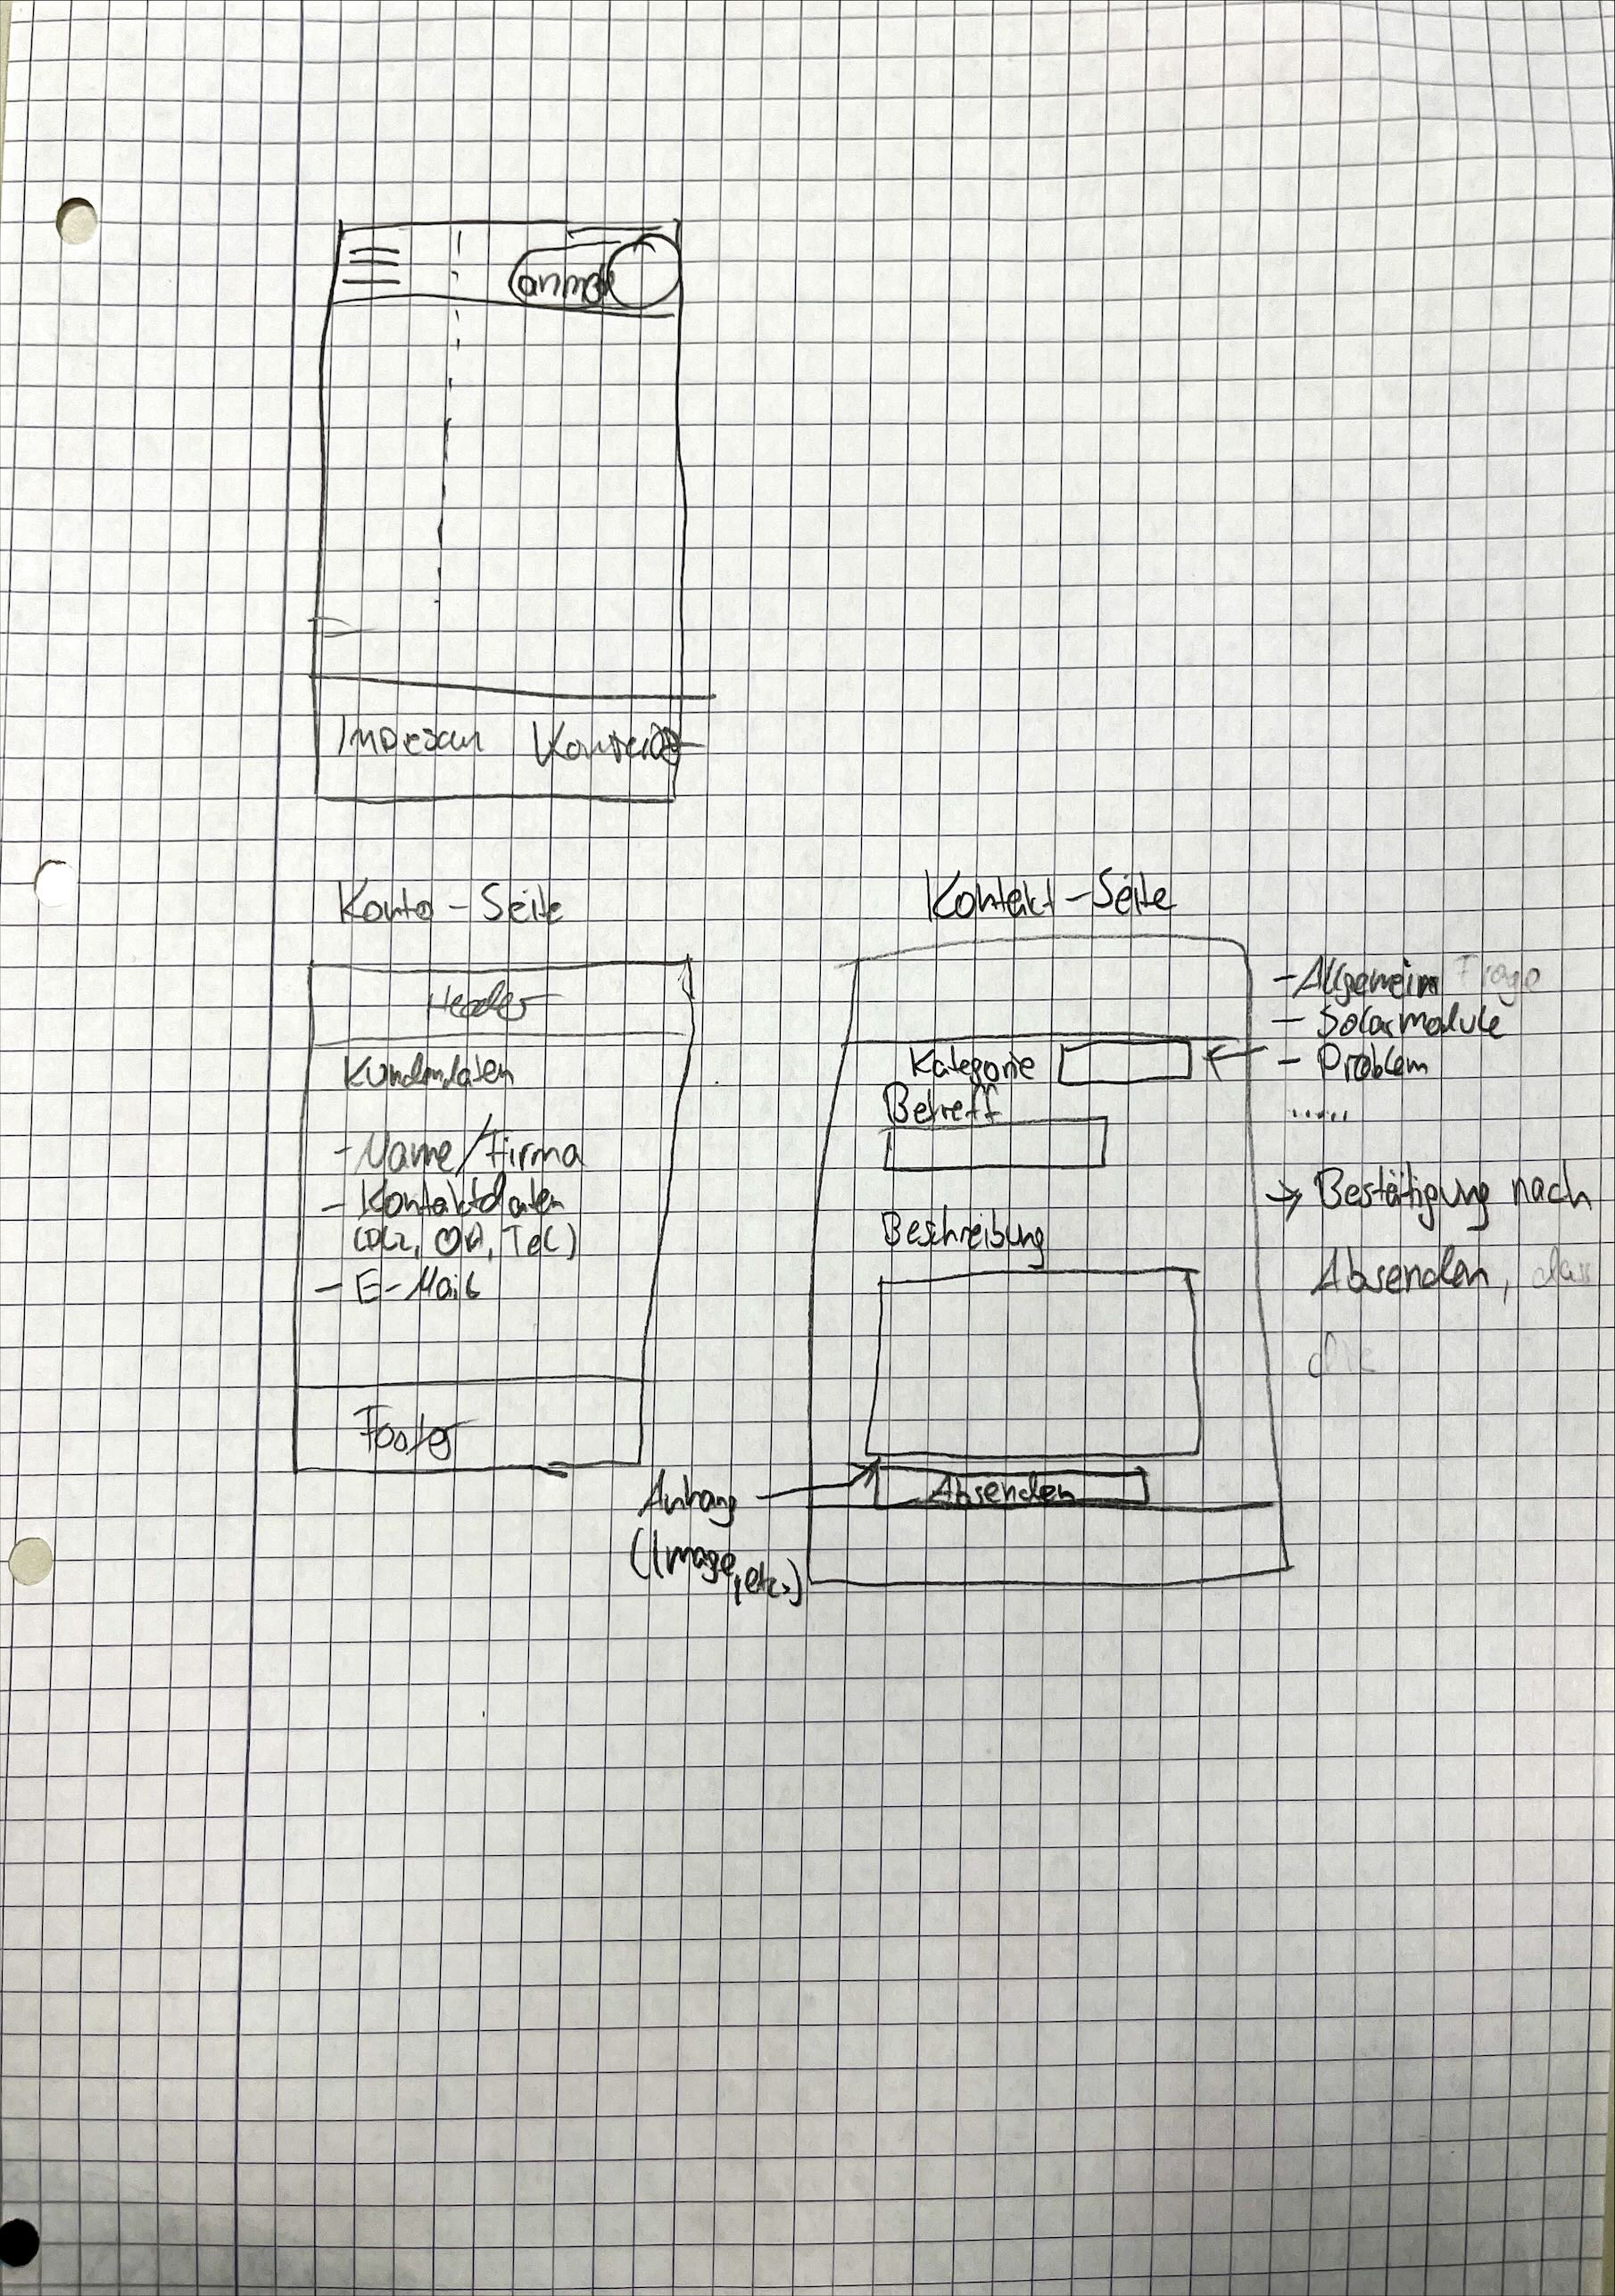 Konto - Seite
Header
Kundendaten
- Name/Firma
- Kontaktdaten
(PLZ, Ort, Tel)
- E-Mail
Footer
Kontakt - Seite
Kategorie
Betreff
Beschreibung
Absenden
Anhang
(Image, etc.)
- Allgemein Frage
- Solarmodule
- Problem
......
→ Bestätigung nach
Absenden, dass
die